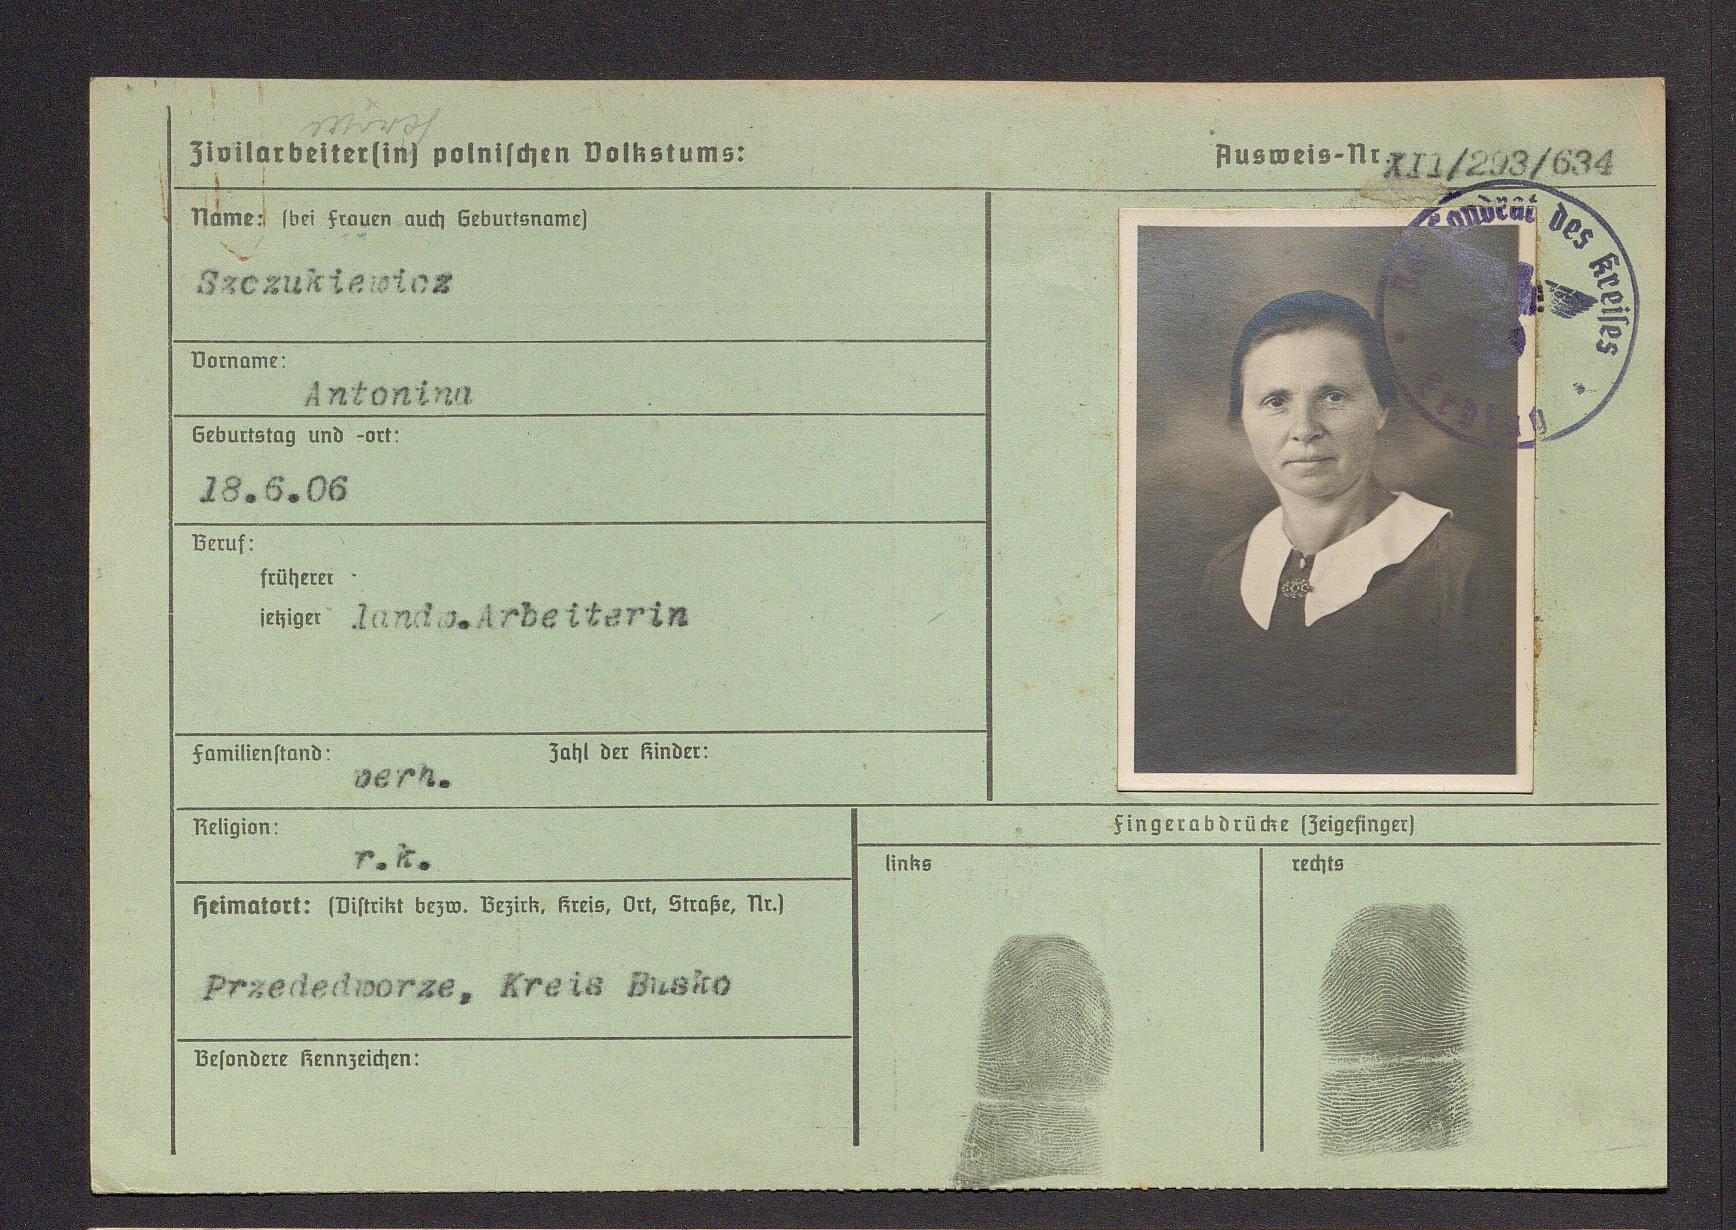 Zivilarbeiter(in) polnischen Volkstums:
Ausweis-Nr. XII/293/634
Name: (bei Frauen auch Geburtsname)
Szczukiewicz
Vorname:
Antonina
Geburtstag und -ort:
18.6.06
Beruf:
früherer
jetziger landw.Arbeiterin
Familienstand: verh. Zahl der Kinder:
Religion:
r.k.
Heimatort: (Distrikt bezw. Bezirk, Kreis, Ort, Straße, Nr.)
Przededworze, Kreis Busko
Besondere Kennzeichen:
Landrat des Kreises
Fingerabdrücke (Zeigefinger)
links
rechts